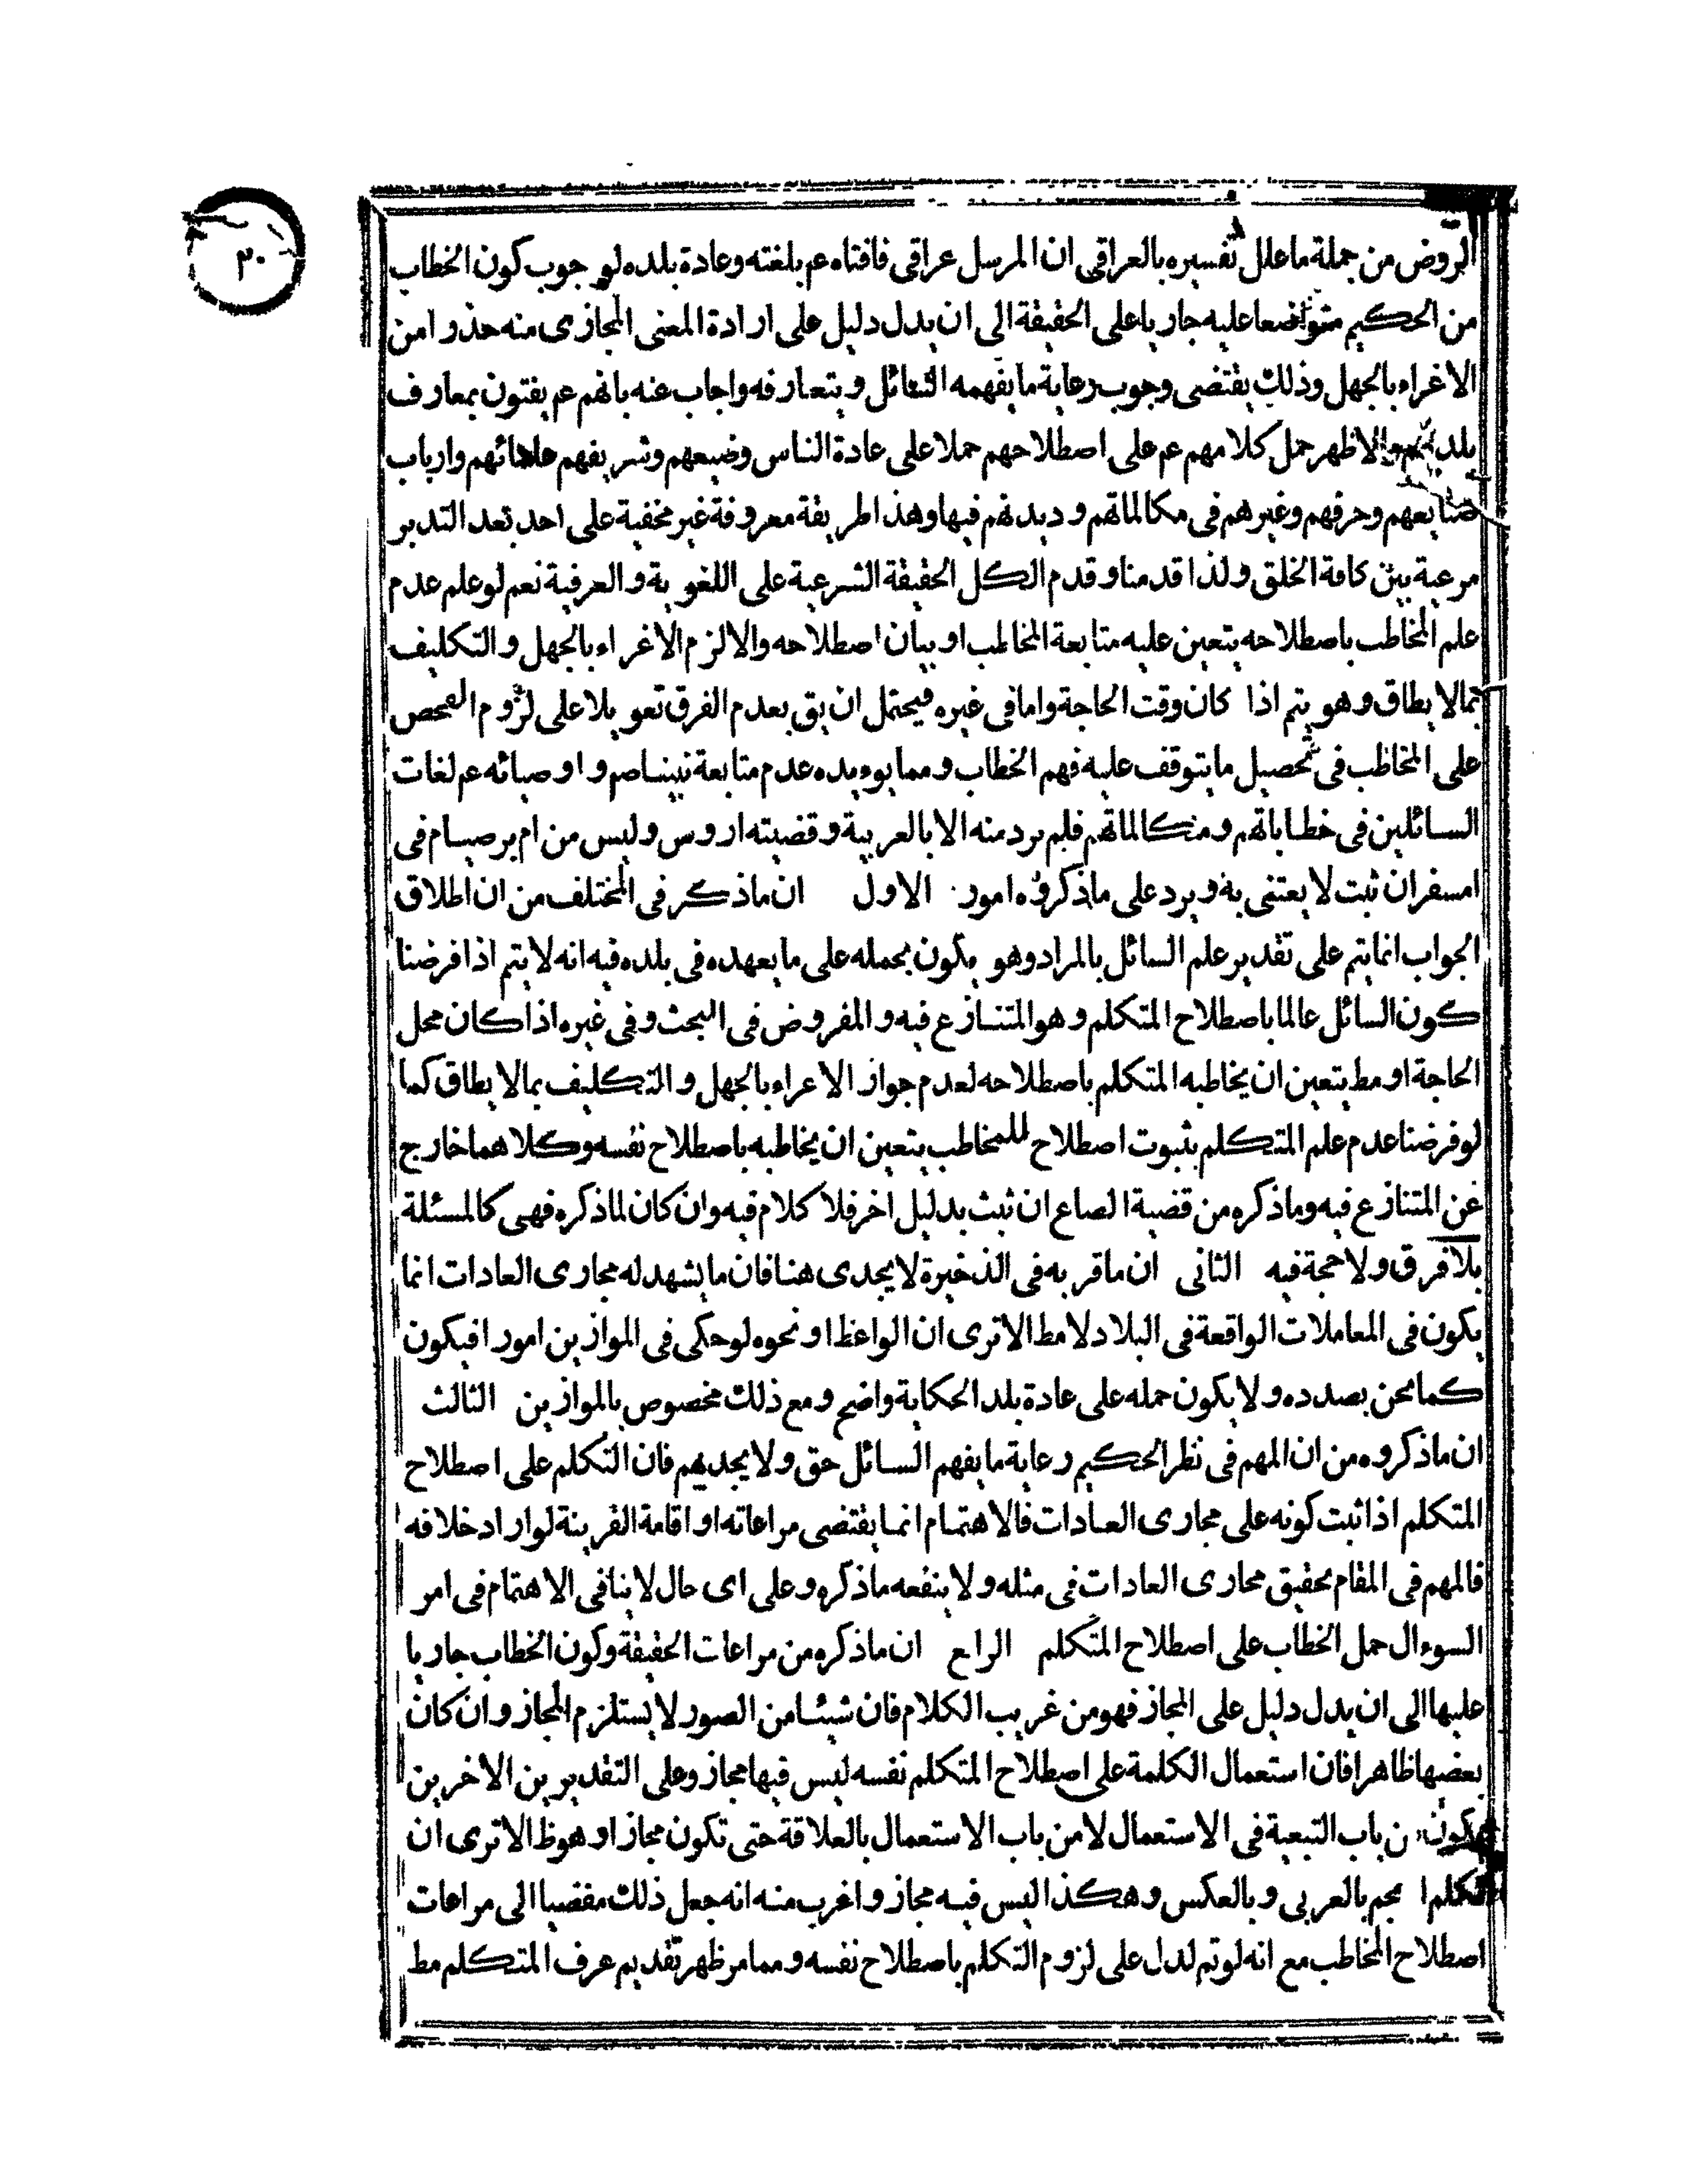 ٢٠
الروض من جملة ما علل تفسيره بالعراقى ان المرسل عراقى فافتاه ع بلغته وعادة بلده لوجوب كون الخطاب
من الحكيم متواضعا عليه جاريا على الحقيقة الى ان يدل دليل على ارادة المعنى المجازى منه حذرا من
الاغراء بالجهل وذلك يقتضى وجوب رعاية ما يفهمه السائل ويتعارفه واجاب عنه بانهم ع يفتون بمعارف
والاظهر حمل كلامهم ع على اصطلاحهم حملا على عادة الناس وضيعهم وشريفهم علمائهم وارباب
صنايعهم وحرفهم وغيرهم فى مكالماتهم وديدنهم فيها وهذا طريقة معروفة غير مخفية على احد بعد التدبر
مرعية بين كافة الخلق ولذا قدمنا وقدم الكل الحقيقة الشرعية على اللغوية والعرفية نعم لو علم عدم
علم المخاطب باصطلاحه يتعين عليه متابعة المخاطب او بيان اصطلاحه والا لزم الاغراء بالجهل والتكليف
بمالا يطاق وهو يتم اذا كان وقت الحاجة واما فى غيره فيحتمل ان يق بعدم الفرق تعويلا على لزوم الفحص
على المخاطب فى تحصيل ما يتوقف عليه فهم الخطاب ومما يوءيده عدم متابعة نبينا صم واوصيائه ع لغات
السائلين فى خطاباتهم ومكالماتهم فلم يرد منه الا بالعربية وقضيته اروس وليس من ام بر صيام فى
امسفر ان ثبت لا يعتنى به ويرد على ما ذكروه امور الاول ان ما ذكر فى المختلف من ان اطلاق
الجواب انما يتم على تقدير علم السائل بالمراد وهو يكون بحمله على ما يعهده فى بلده فيه انه لا يتم اذا فرضنا
كون السائل عالما باصطلاح المتكلم وهو المتنازع فيه والمفروض فى البحث وفى غيره اذا كان محل
الحاجة او مط يتعين ان يخاطبه المتكلم باصطلاحه لعدم جواز الاغراء بالجهل والتكليف بمالا يطاق كما
لو فرضنا عدم علم المتكلم بثبوت اصطلاح للمخاطب يتعين ان يخاطبه باصطلاح نفسه وكلاهما خارج
عن المتنازع فيه وما ذكره من قضية الصاع ان ثبت بدليل اخر فلا كلام فيه وان كان لما ذكره فهى كالمسئلة
بلا فرق ولا حجة فيه الثانى ان ما قر به فى الذخيرة لا يجدى هنا فان ما يشهد له مجارى العادات انما
يكون فى المعاملات الواقعة فى البلاد لا مط الا ترى ان الواعظ او نحوه لو حكى فى الموازين امورا فيكون
كما نحن بصدده ولا يكون حمله على عادة بلد الحكاية واضح ومع ذلك مخصوص بالموازين الثالث
ان ما ذكروه من ان المهم فى نظر الحكيم رعاية ما يفهم السائل حق ولا يجديهم فان التكلم على اصطلاح
المتكلم اذا ثبت كونه على مجارى العادات فالاهتمام انما يقتضى مراعاته او اقامة القرينة لو اراد خلافه
فالمهم فى المقام تحقيق مجارى العادات فى مثله ولا ينفعه ما ذكره وعلى اى حال لا ينافى الاهتمام فى امر
السوءال حمل الخطاب على اصطلاح المتكلم الرابع ان ما ذكره من مراعات الحقيقة وكون الخطاب جاريا
عليها الى ان يدل دليل على المجاز فهو من غريب الكلام فان شيئا من الصور لا يستلزم المجاز وان كان
بعضها ظاهرا فان استعمال الكلمة على اصطلاح المتكلم نفسه ليس فيها مجاز وعلى التقديرين الاخرين
يكون من باب التبعية فى الاستعمال لا من باب الاستعمال بالعلاقة حتى تكون مجازا وهو ظ الا ترى ان
بالعربى وبالعكس وهكذا ليس فيه مجاز واغرب منه انه جعل ذلك مفضيا الى مراعات
اصطلاح المخاطب مع انه لو تم لدل على لزوم التكلم باصطلاح نفسه ومما مر ظهر تقديم عرف المتكلم مط